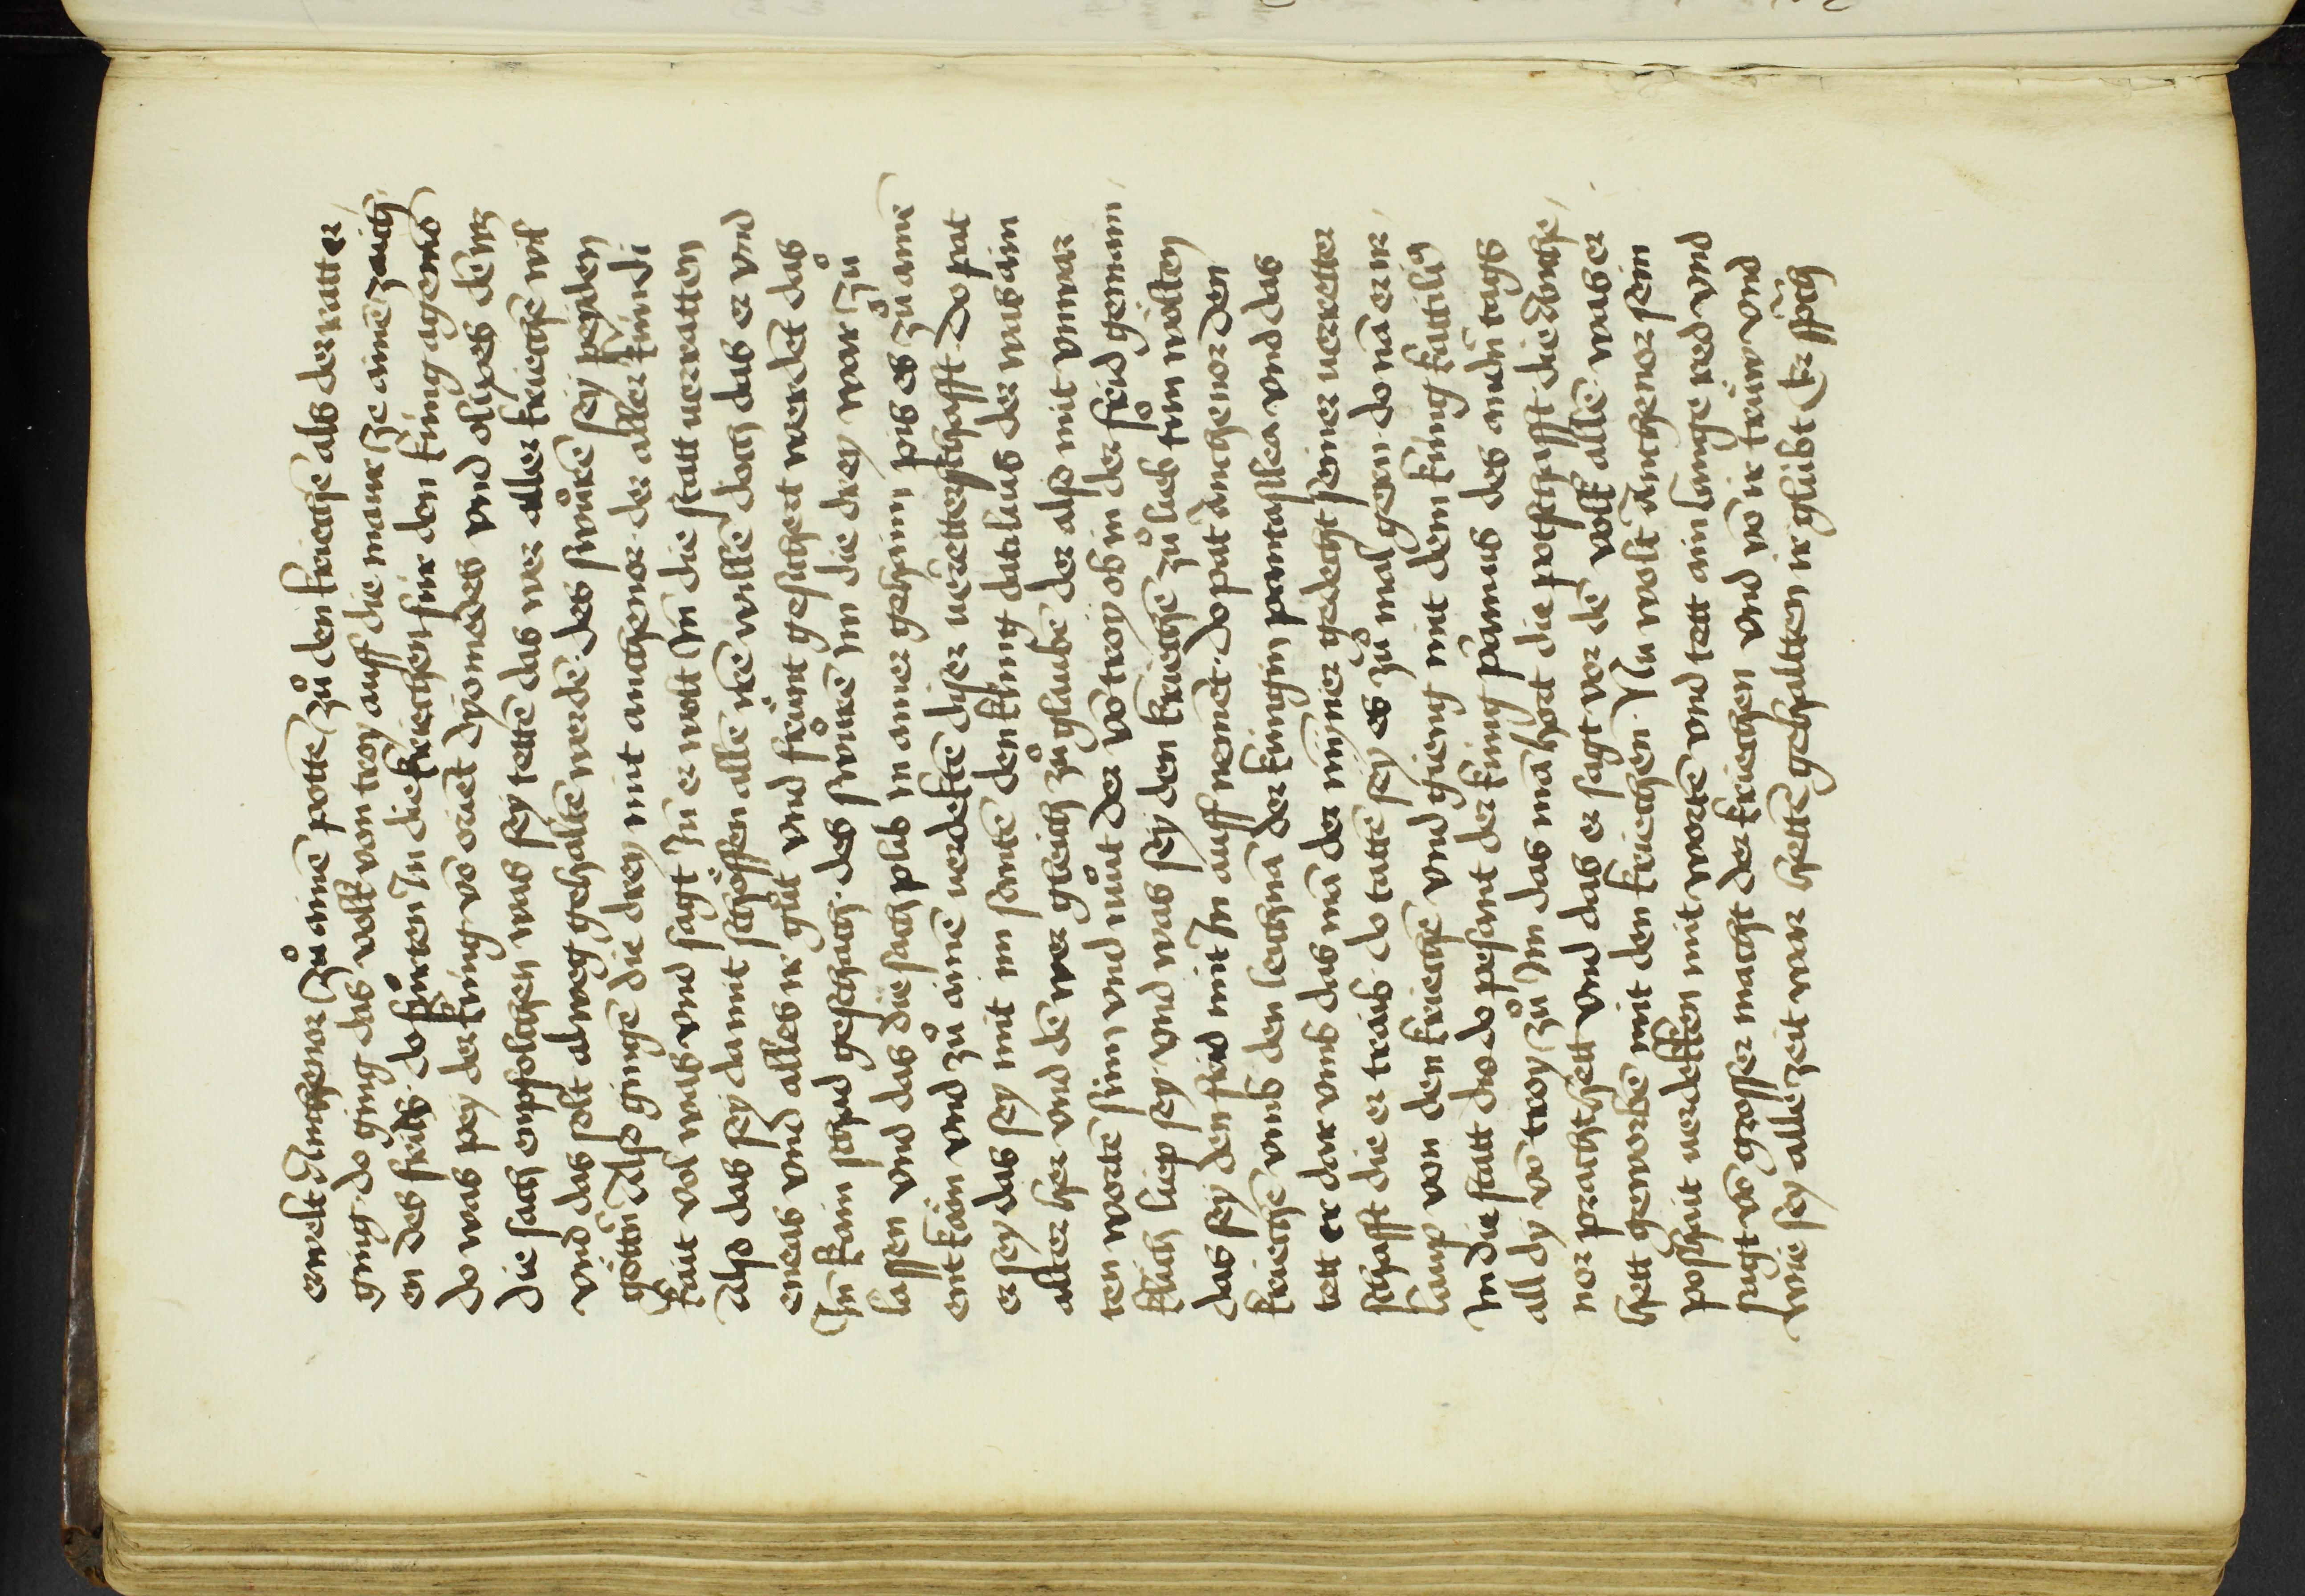 erwelt Anthenor zů ainē pottē zů den kriechē als der ratt er
ging do ging das volk von troy auff die maur ze ainē zaich
en des frids do fůrten In die kriechen fur den kung agemō
do was pey der kūng vō criet dyomedes vnd olixes dē wz
die sach enpfolchen was sey tettē das wer aller kriechē wil
vnd das solt alweg gehaltē werdē des swůrē sey pey den
göttñ Also gingē die drey mit anthenor der aller kundi
kait vol was vnd sagt In er wolt In die statt verratten
Also das sey damit schüffen allē irē willē doch das er vnd
eneas vnd alles ir gůt vnd freünt gesichert werdēt das
In kain schad geschach des swůrē Im die drey wor zů
lassen vnd das die sach plib in ainer gehaim pis es zů ainē
ent käm vnd zů ainē verdektē diser veretterschafft do pat
er sey das sey mit im santē den kūng daticius der was ain
alter her vnd dē wer gleich zů glaubē der also mit vnwar
ten wortē sinn vnd můt der vō troy ob in der frid genām
klich liep sey vnd was sey den kriechē zů lieb tůn wolten
das sey den frid mit In auff nemēt do pat Anthenor den
kriechē vmb den leichnā der kungin pantasilea vnd das
tett er dar vmb das mā der mynner gedecht seiner verretter
schafft die er traib do tattē sey es zů mal gern do nā er ir
laup von den kriechē vnd gieng mit dem kung kattilio
In die statt dio do pesant der kung priamus des andñ tags
all dy vō troy zů Im das mā hort die potschafft die Anthe
nor pracht hett vnd das er sagt vor dē volk allē was er
hett geworbē mit den kriechen Nu wolt Anthenor sein
poshait verdekken mit wortē vnd tett ain lange red vnd
sagt vō grosser macht der kriechen vnd vō ir trüw vnd
wie sey alle zeit war hettē gehaltten ir glübt Er sprach